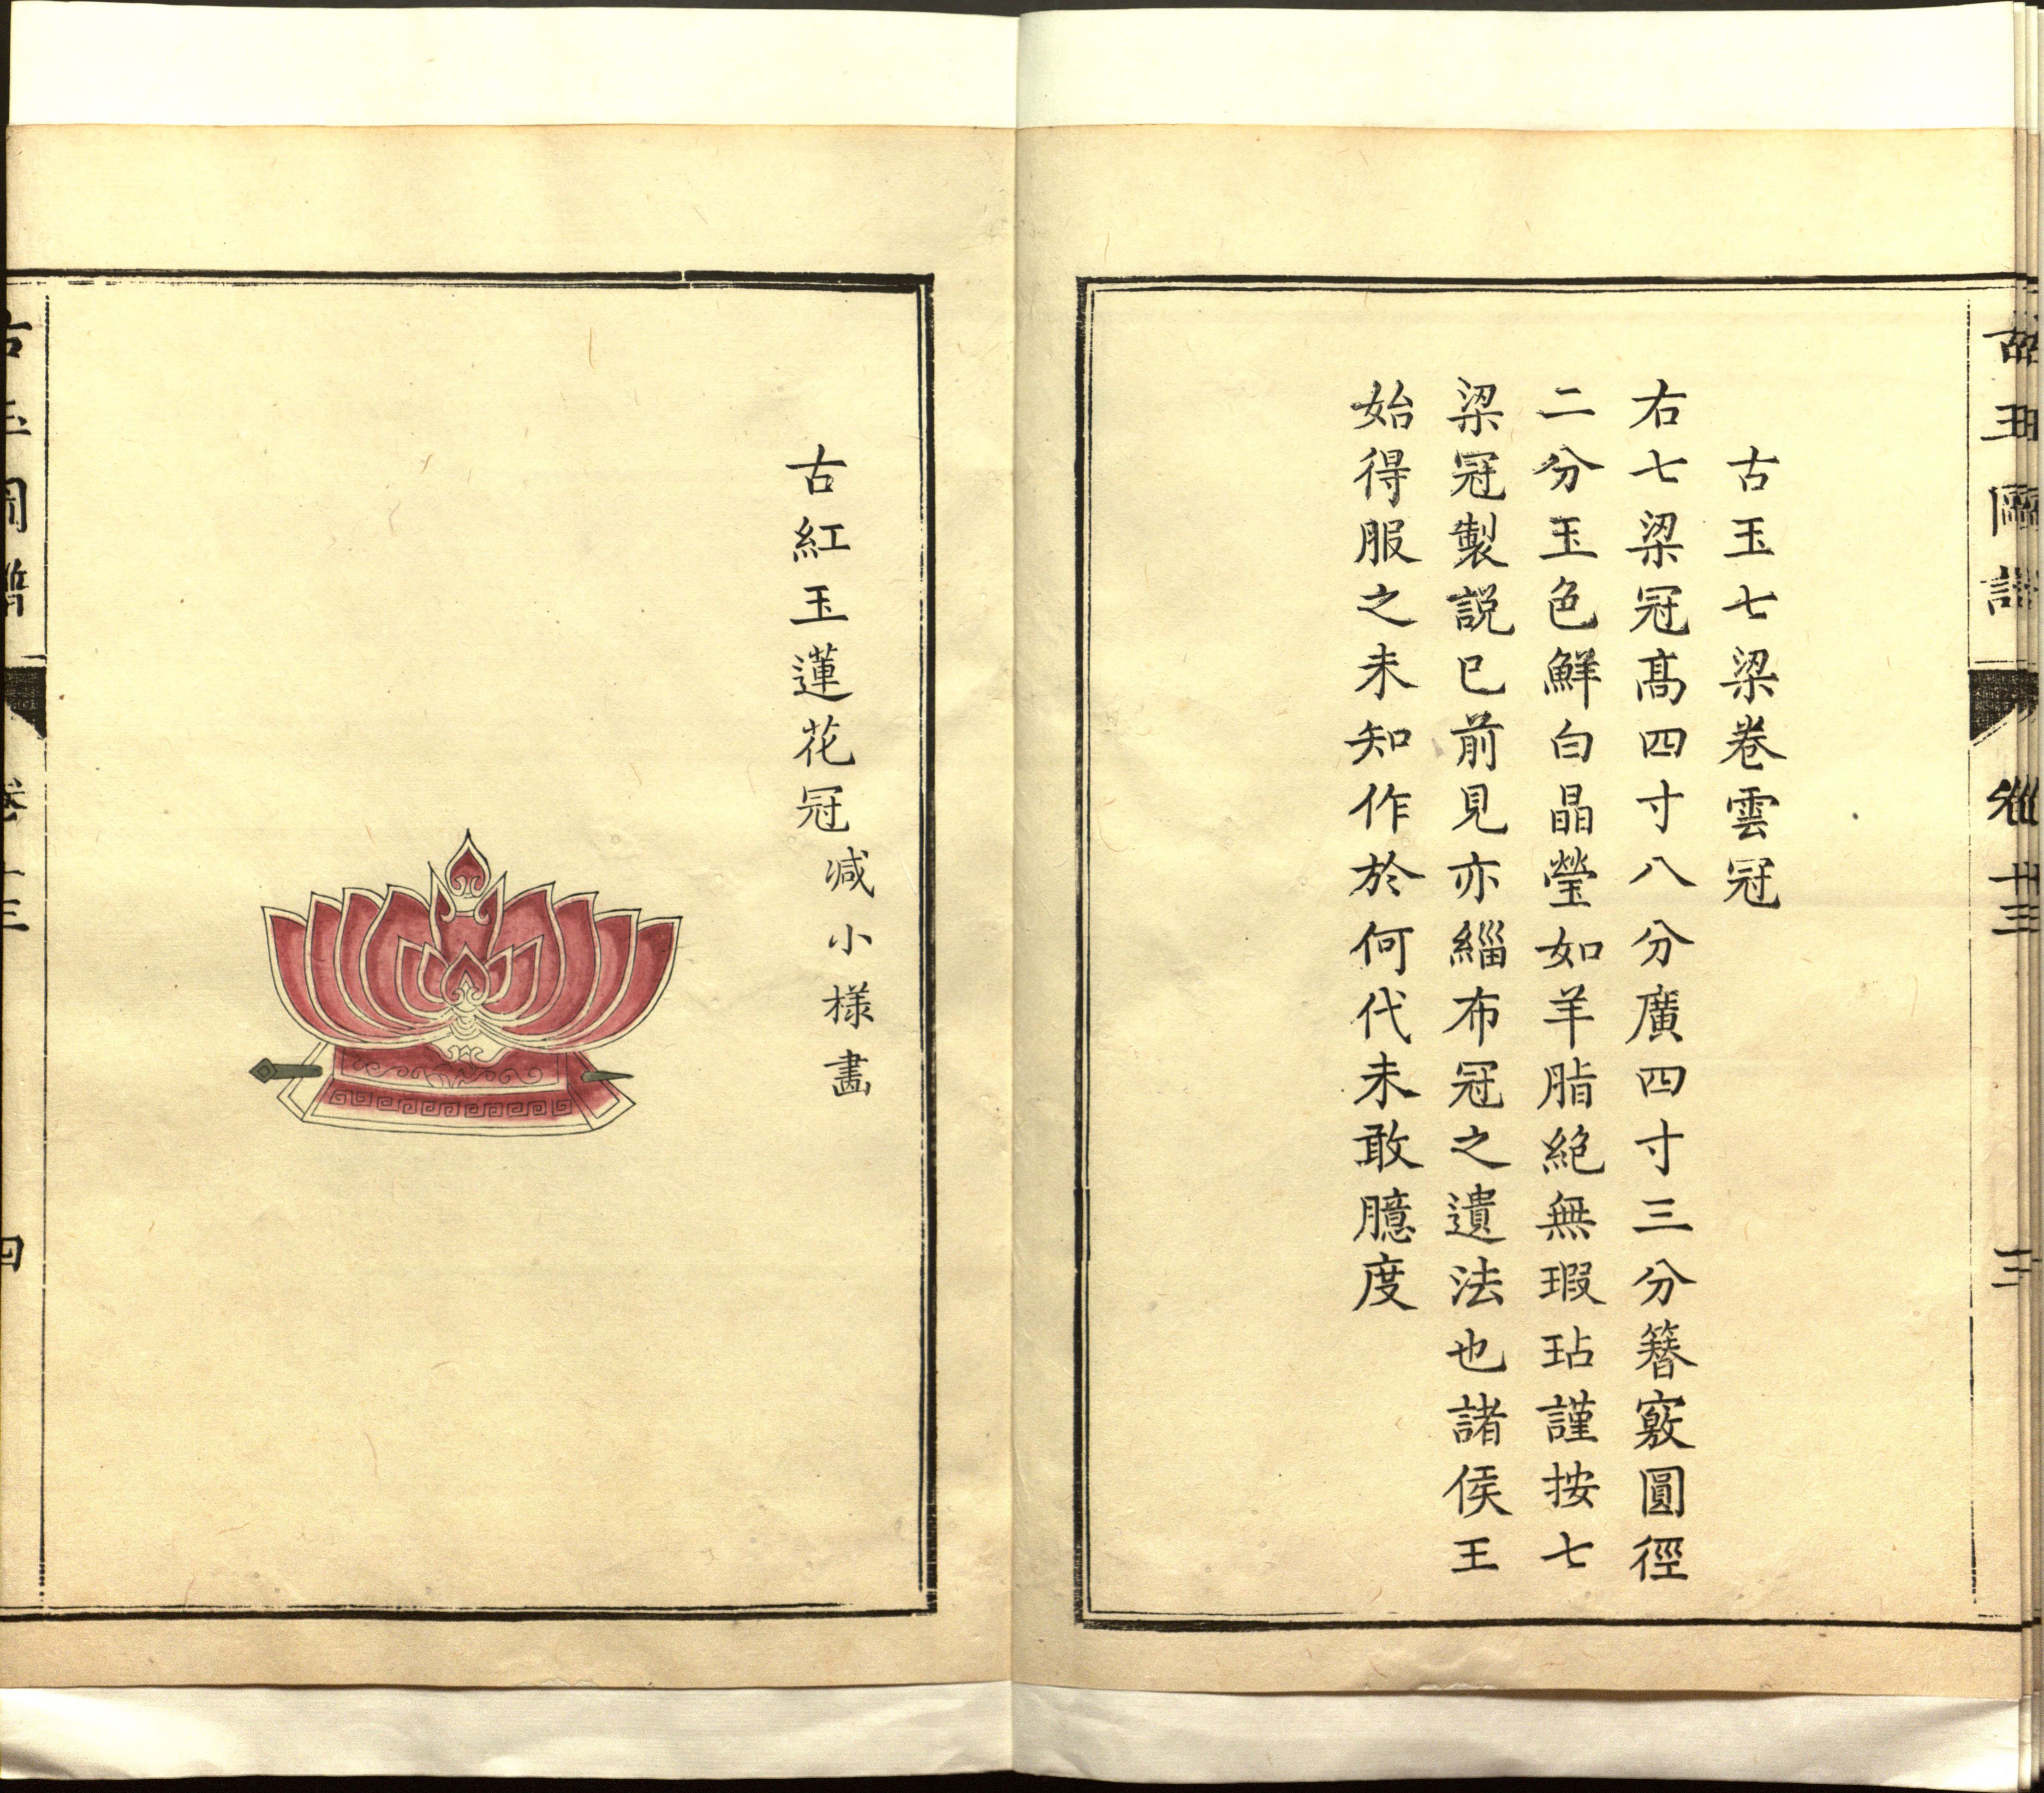 古玉圖譜 卷十三 三
古玉七梁卷雲冠
右七梁冠髙四寸八分廣四寸三分簮竅圓徑
二分玉色鮮白晶瑩如羊脂絶無瑕玷謹按七
梁冠製説已前見亦緇布冠之遺法也諸侯王
始得服之未知作於何代未敢臆度
古紅玉蓮花冠 减小様畵
古玉圖譜 卷十三 四